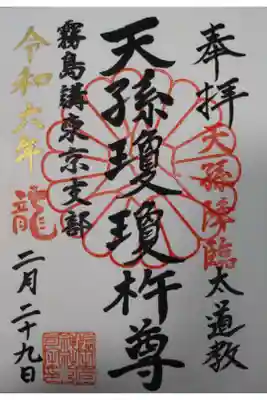 奉拝
天孫降臨
太道教
天孫瓊瓊杵尊
霧島講東京支部
令和六年
龍
二月二十九日